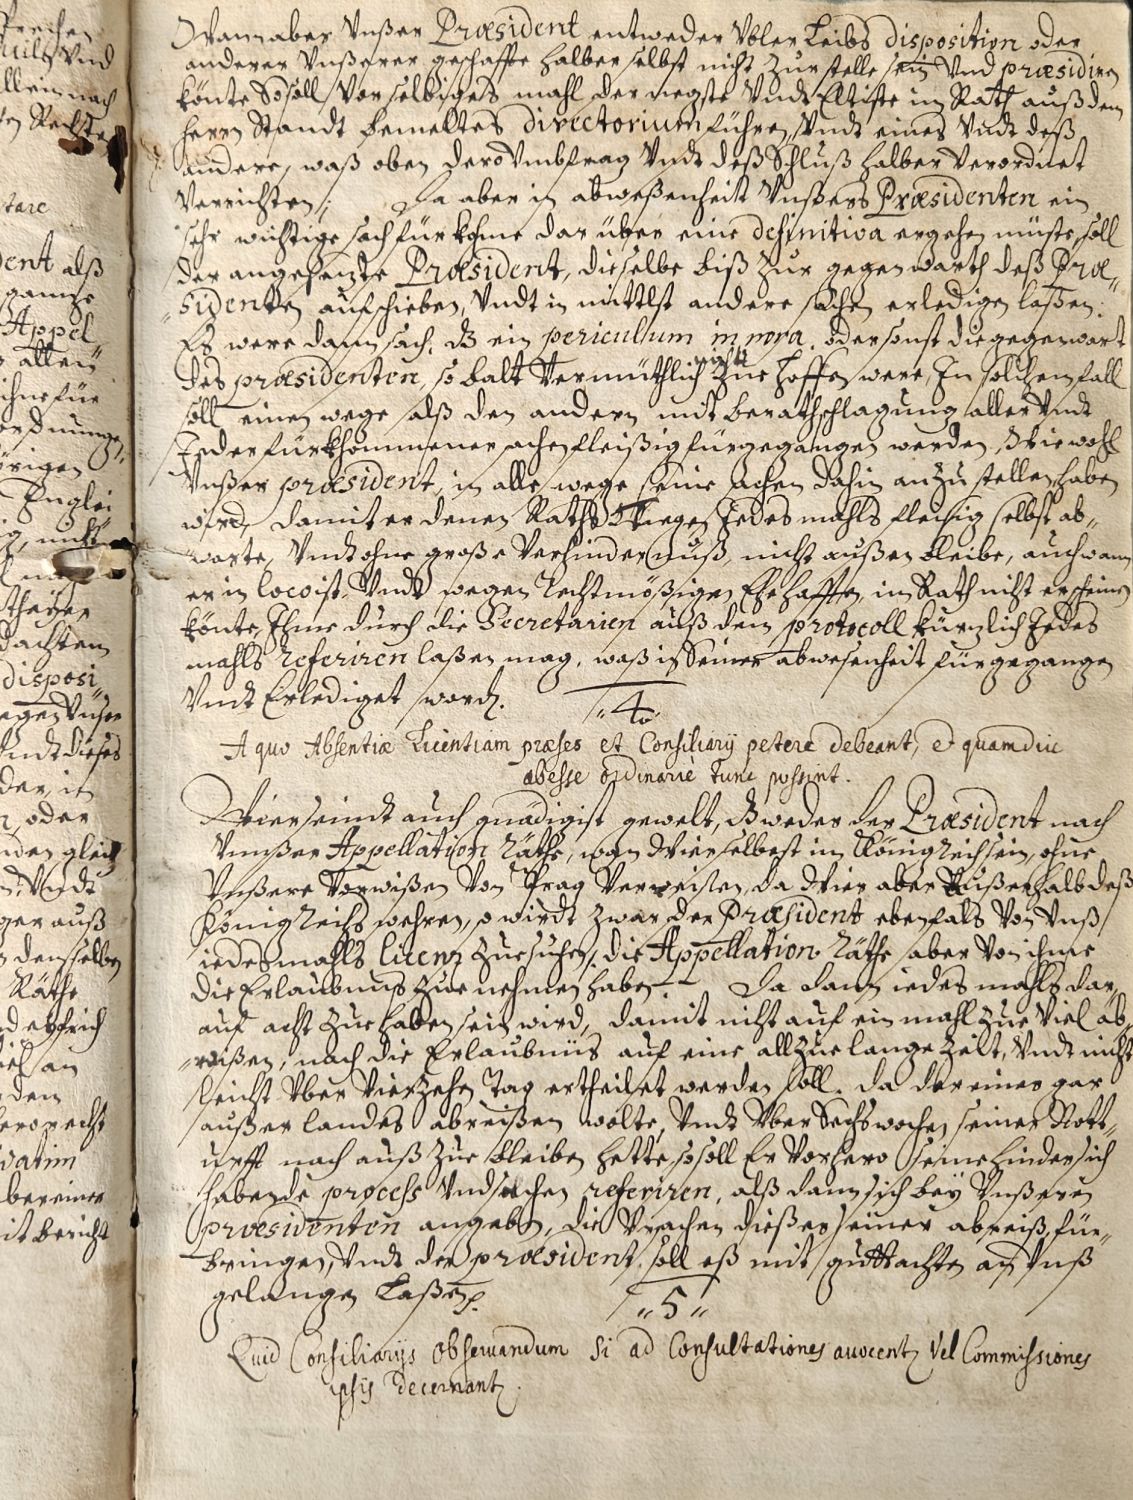 Wann aber Unßer Præsident entweder Übler Leibs disposition oder
anderer Unßerer geschäffte halber selbst nicht zur stelle sein Und præsidiren
könte So soll Vor selbiges mahl der negste Undt Eltiste im Rath auß dem
Herrn Standt bemeltes directorium führen, Undt eines Undt deß
andere, waß oben dero Umbfrag Undt deß Schluß halber Verordnet
Verrichten; Da aber in abweßenheit Unßers Præsidenten ein
sehr wichtige sach fürkohme darüber eine definitiva ergehen müste, soll
der angesetzte Præsident, dieselbe biß zur gegenwarth deß Præ-
sidenten aufschieben, Undt in mittlst andere sachen erledigen laßen.
Es were dann sach, dz ein periculum in mora, oder sonst die gegenwart
des præsidenten, so balt Vermüthlich nicht zue hoffen were, In solchem fall
soll einen wege alß den andern mit berathschlagung aller Undt
Jeder fürkhommener sachen fleißig fürgegangen werden, Wiewohl
Unßer præsident, in alle wege seine sachen dahin anzustellen haben
wird, damit er denen Raths Wegen Jedes mahls fleißig selbst ab-
warte, Undt ohne große Verhindernuß, nicht außen bleibe, auch wann
er in loco ist, Undt wegen Rechtmäßigen Ehehafften, im Rath nicht erscheinen
könte, Ihme durch die Secretarien auß dem protocoll kürzlich Jedes
mahls referiren laßen mag, waß in Seiner abwesenheit fürgegangen
Undt Erlediget word.
"4"
A quo Absentiæ Licentiam præses et Consiliarij petere debeant, et quamdiu
abesse ordinariè tunc possint.
Wier seindt auch gnädigist gewelt, dz weder der Præsident noch
Unnßer Appellation Räthe, wan Wier selbest im Königreich sein, ohne
Unßere Vorwißen Von Prag Verreißen, da Wier aber Außerhalb deß
Königreichs wehren, so wirdt zwar der Præsident ebenfals Von Unß
iedesmahls licenz zue suchen, die Appellation Räthe aber Von ihme
die Erlaubnus zue nehmen haben. Da dann iedes mahls dar-
auf acht zue haben sein wird, damit nicht auf ein mahl zue Viel ab-
reißen, noch die Erlaubnüs auf eine allzue lange Zeit, Undt nicht
leicht Uber Vierzehn Tag ertheilet werden soll. Da der einer gar
außer landes abreißen wolte, Undt Uber Sechs wochen seiner Nott-
urfft nach auß zue bleiben hette, so soll Er Vorhero seine hinder sich
habende process Und sachen referiren, alß dann sich bey Unßeren
præsidenten angeben, die Ursachen dießer seiner abreiß für-
bringen, Undt der præsident soll eß mit guttachten an Unß
gelangen Laßen.
"5"
Quid Consiliarijs observandum si ad Consultationes avocent Vel Commissiones
ipsis decernant.